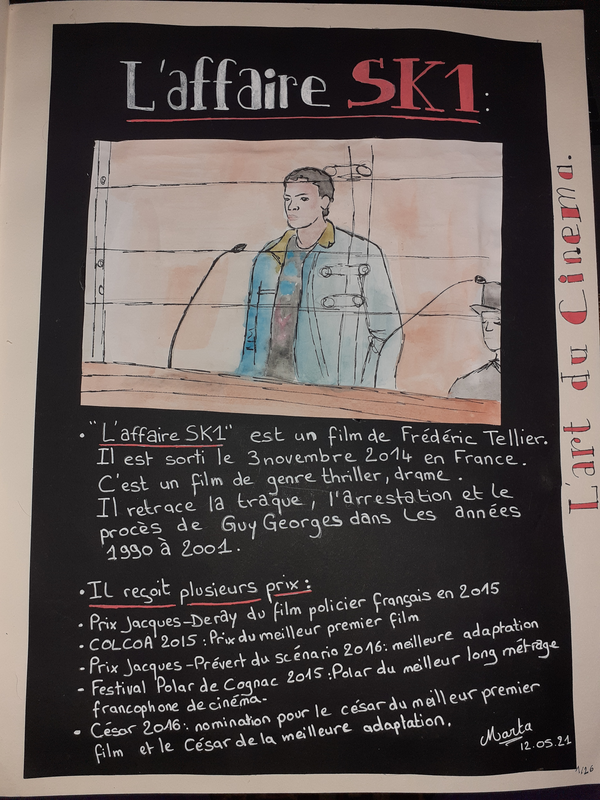 L'affaire SK1:
L'art du Cinema.
• "L'affaire SK1" est un film de Frédéric Tellier.
Il est sorti le 3 novembre 2014 en France.
C'est un film de genre thriller, drame.
Il retrace la traque, l'arrestation et le
procès de Guy Georges dans les années
1990 à 2001.
• Il reçoit plusieurs prix:
- Prix Jacques-Deray du film policier français en 2015
- COLCOA 2015: Prix du meilleur premier film
- Prix Jacques-Prévert du scénario 2016: meilleure adaptation
- Festival Polar de Cognac 2015: Polar du meilleur long métrage
francophone de cinéma.
• César 2016: nomination pour le césar du meilleur premier
film et le César de la meilleure adaptation.
Marta
12.05.21